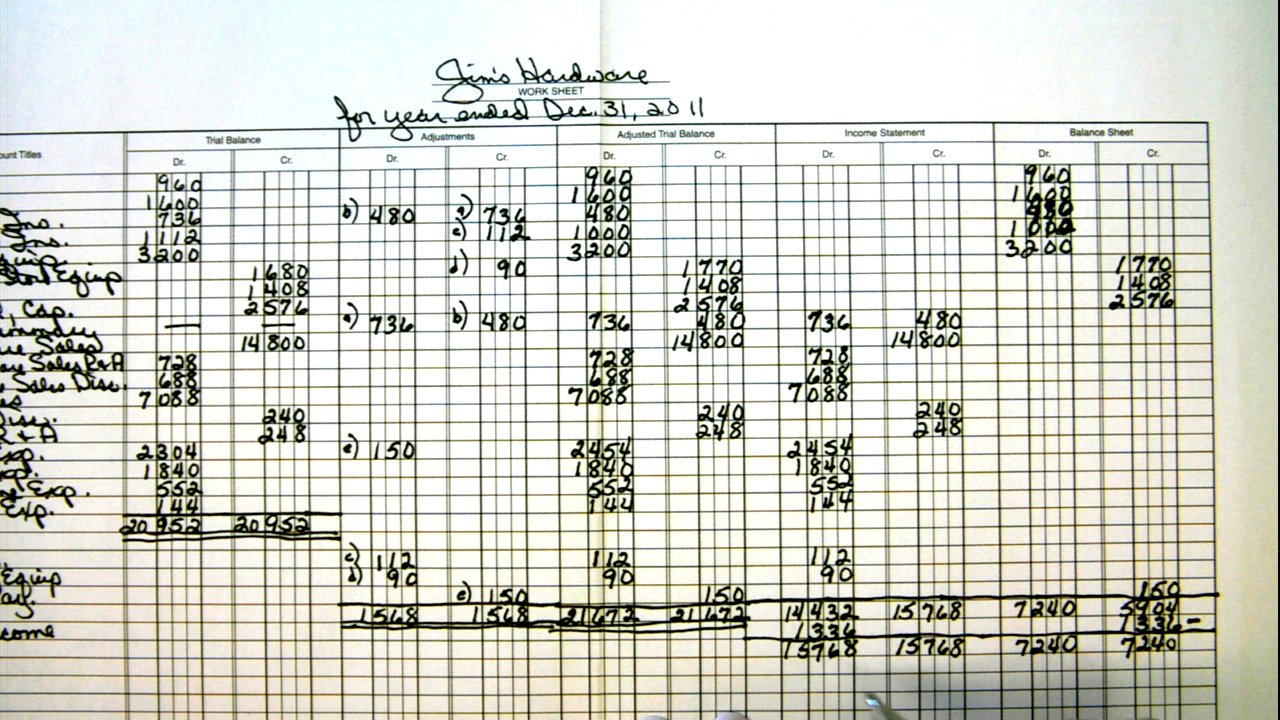 Jim's Hardware
WORK SHEET
for year ended Dec. 31, 2011
unt Titles Trial Balance Adjustments Adjusted Trial Balance Income Statement Balance Sheet
Dr. Cr. Dr. Cr. Dr. Cr. Dr. Cr. Dr. Cr.
960 960 960
1600 1600 1600
Ins. 736 b) 480 a) 736 480 480
Ins. 1112 c) 112 1000 1000
Equip. 3200 3200 3200
Store Equip 1680 d) 90 1770 1770
1408 1408 1408
, Cap. 2576 2576 2576
ummary — — a) 736 b) 480 736 480 736 480
Sales 14800 14800 14800
Sales R&A 728 728 728
Sales Disc. 688 688 688
es 7088 7088 7088
Disc. 240 240 240
R & A 248 248 248
Exp. 2304 e) 150 2454 2454
Exp. 1840 1840 1840
Exp. 552 552 552
Exp. 144 144 144
20952 20952
c) 112 112 112
Equip d) 90 90 90
ay. e) 150 150 150
1568 1568 21672 21672 14432 15768 7240 5904
come 1336 1336 -
15768 15768 7240 7240